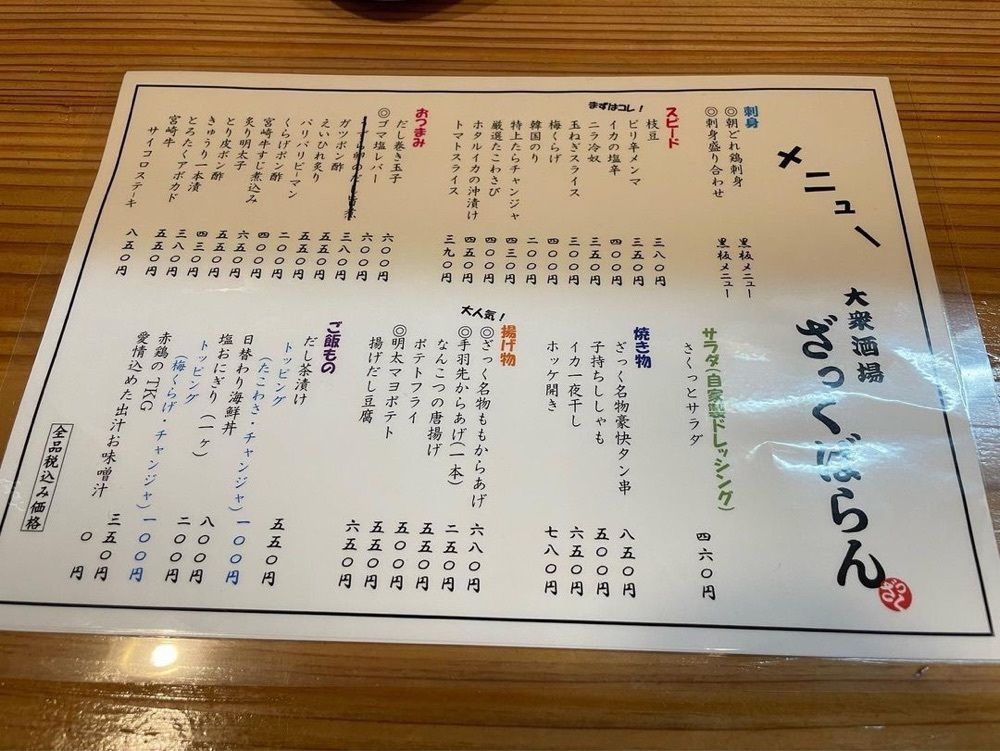 メニュー
大衆酒場
ざっくばらん
ざっく
刺身
◎朝どれ鶏刺身 黒板メニュー
◎刺身盛り合わせ 黒板メニュー
スピード
まずはコレ!
枝豆 三八〇円
ピリ辛メンマ 三五〇円
イカの塩辛 四〇〇円
ニラ冷奴 三五〇円
玉ねぎスライス 三〇〇円
梅くらげ 四〇〇円
韓国のり 二〇〇円
特上たらチャンジャ 四三〇円
厳選たこわさび 四〇〇円
ホタルイカの沖漬け 四五〇円
トマトスライス 三九〇円
おつまみ
だし巻き玉子 六〇〇円
◎ゴマ塩レバー 六〇〇円
三八〇円
ガツポン酢 五五〇円
えいひれ炙り 五五〇円
パリパリピーマン 二〇〇円
くらげポン酢 四〇〇円
宮崎牛すじ煮込み 六五〇円
炙り明太子 五五〇円
とり皮ポン酢 四三〇円
きゅうり一本漬 三八〇円
とろたくアボカド 五五〇円
宮崎牛
サイコロステーキ 八五〇円
サラダ(自家製ドレッシング)
さくっとサラダ 四六〇円
焼き物
ざっく名物豪快タン串 八五〇円
子持ちししゃも 五〇〇円
イカ一夜干し 六五〇円
ホッケ開き 七八〇円
揚げ物
大人気!
◎ざっく名物ももからあげ 六八〇円
◎手羽先からあげ(一本) 二五〇円
なんこつの唐揚げ 五五〇円
ポテトフライ 五〇〇円
◎明太マヨポテト 五五〇円
揚げだし豆腐 六五〇円
ご飯もの
だし茶漬け 五五〇円
トッピング
(たこわさ・チャンジャ) 一〇〇円
日替わり海鮮丼 八〇〇円
塩おにぎり(一ヶ) 二〇〇円
トッピング
(梅くらげ・チャンジャ) 一〇〇円
赤鶏のTKG 三五〇円
愛情込めた出汁お味噌汁 〇円
全品税込み価格